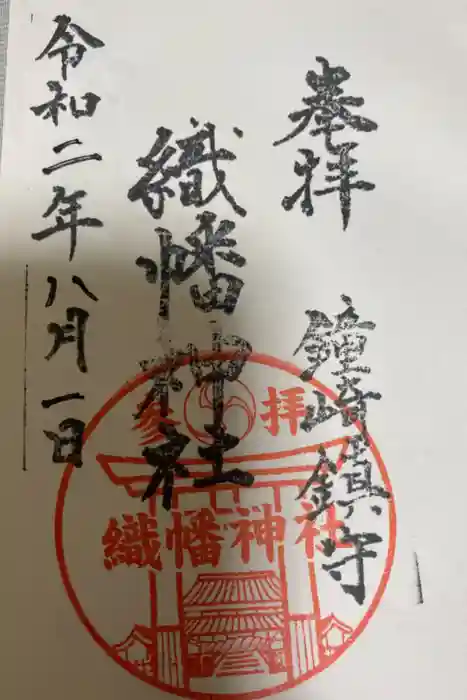 奉拝 鐘崎鎮守
織幡神社
令和二年八月一日
参拝
織幡神社